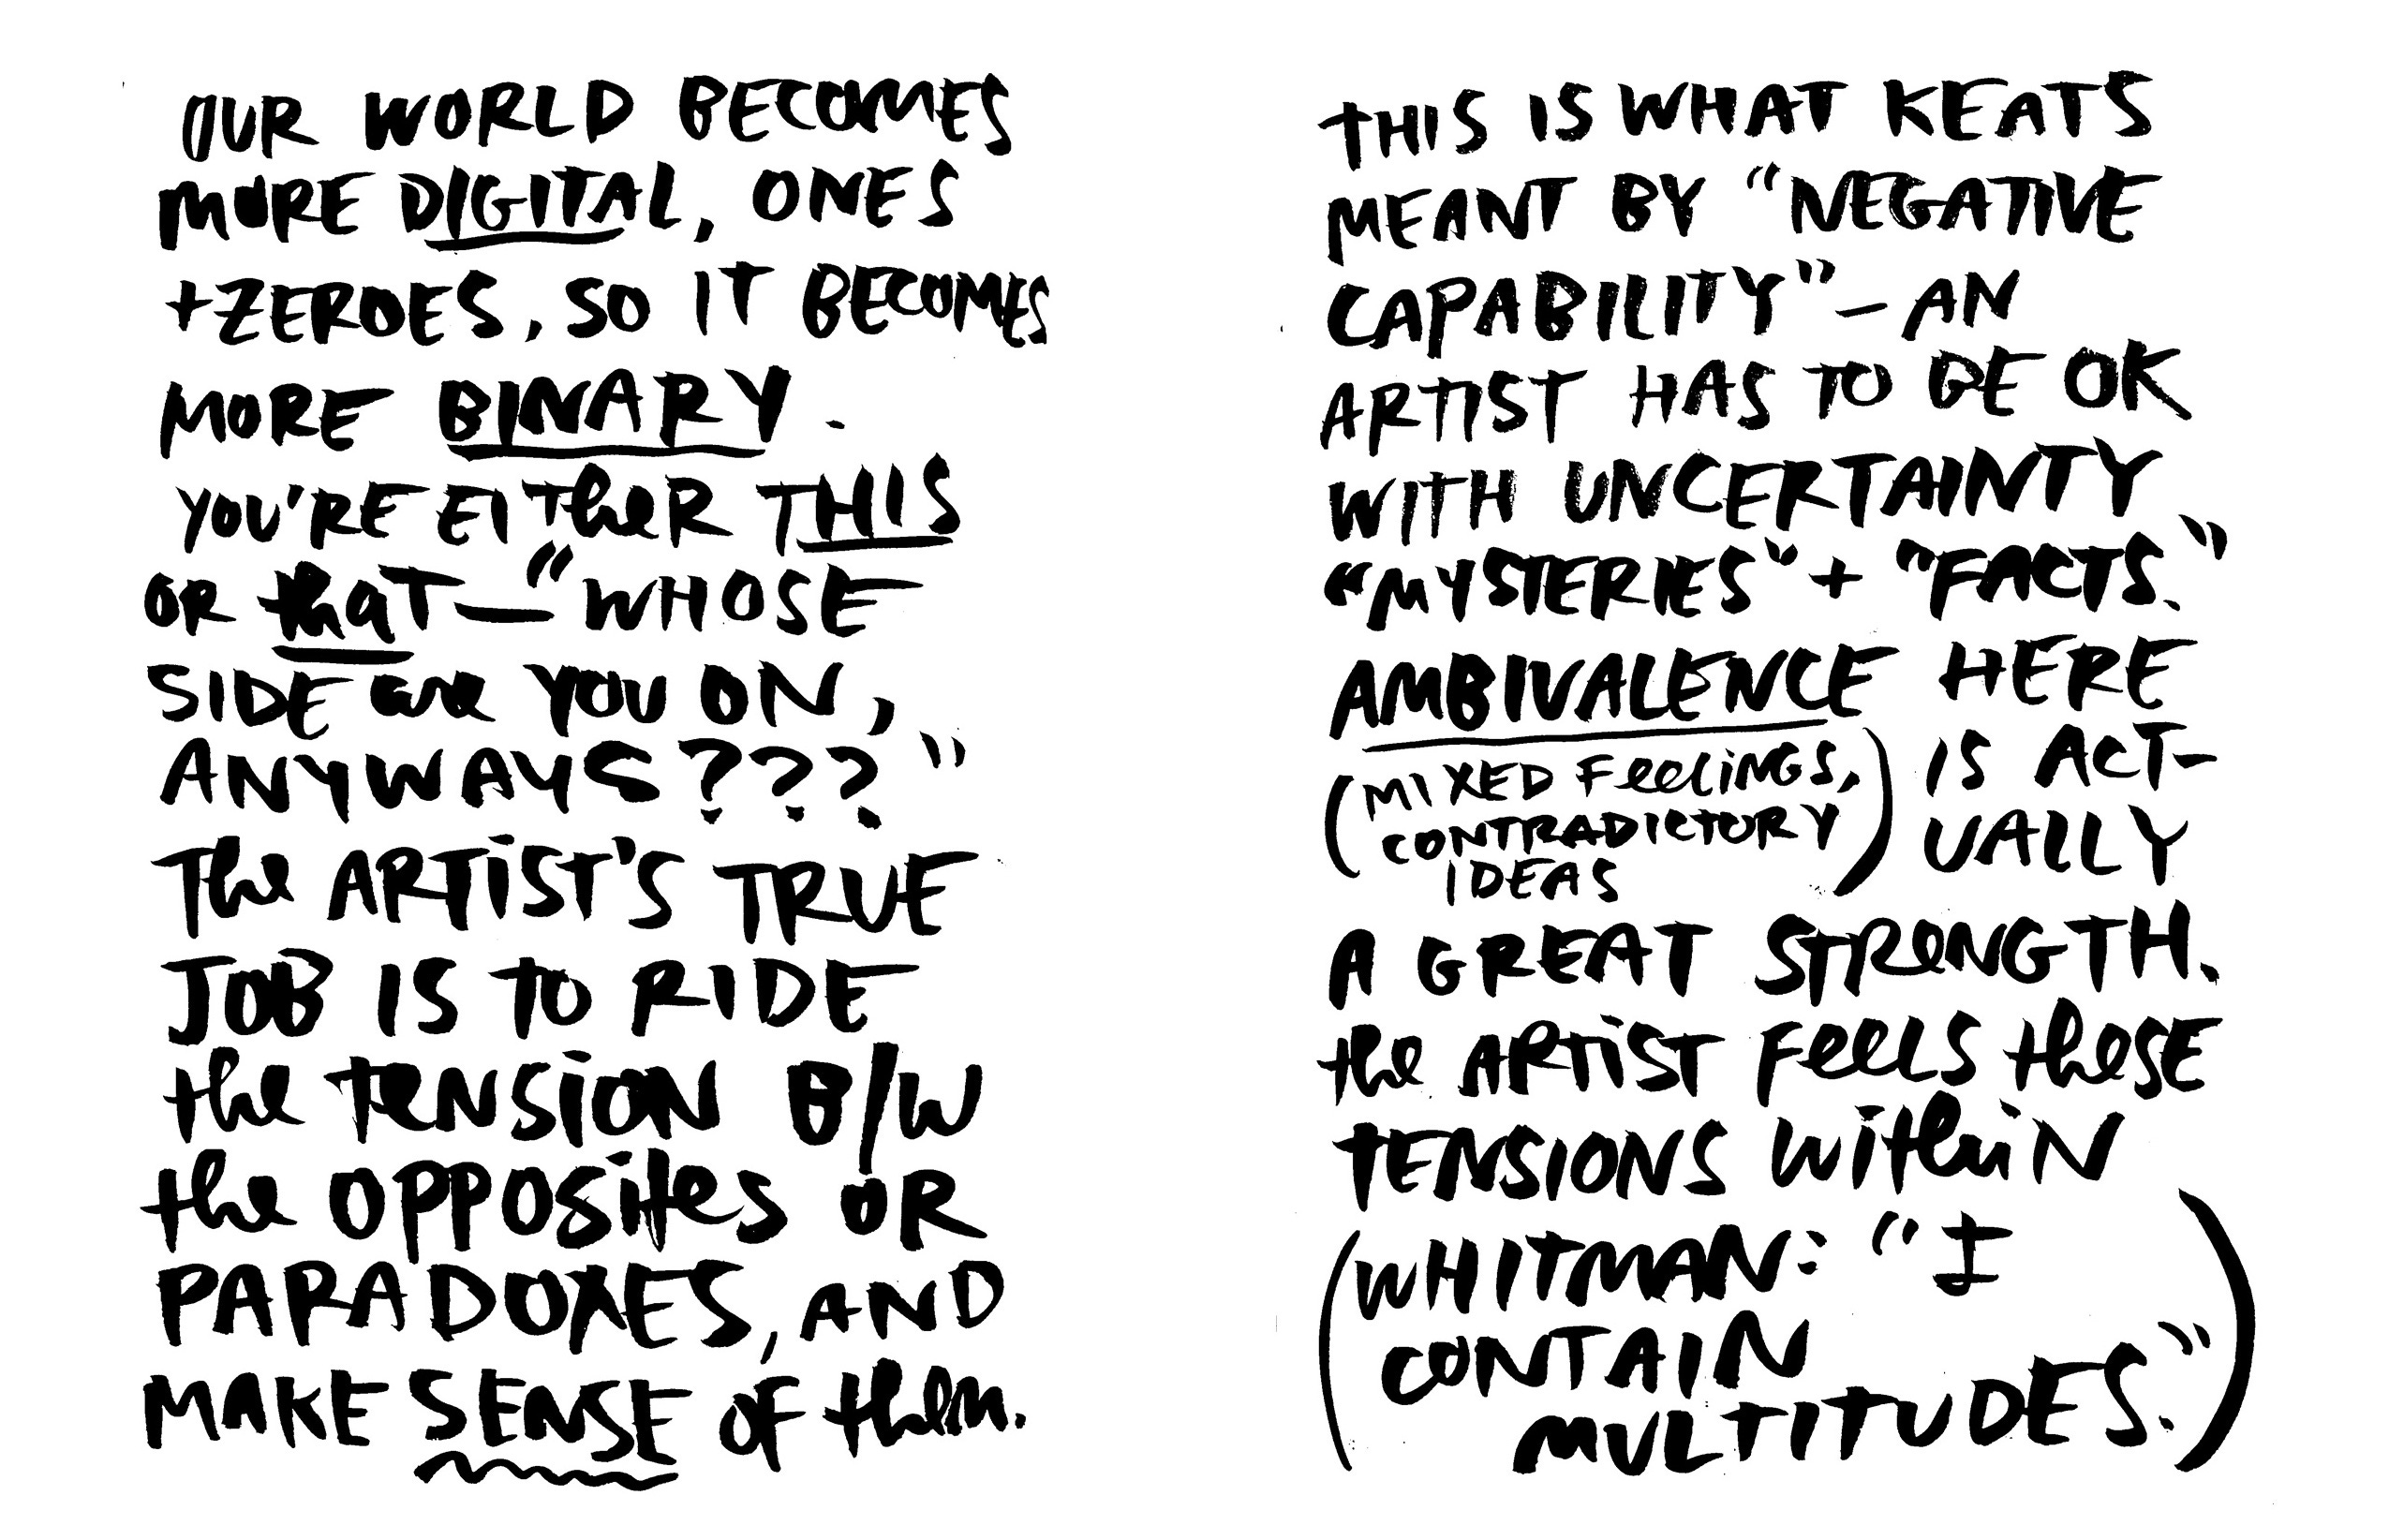 OUR WORLD BECOMES
MORE DIGITAL, ONES
+ ZEROES, SO IT BECOMES
MORE BINARY.
YOU'RE EITHER THIS
OR that — "WHOSE
SIDE are YOU ON,
ANYWAYS???"
The ARTIST'S TRUE
JOB IS TO RIDE
the TENSION B/W
the OPPOSITES OR
PARADOXES, AND
MAKE SENSE OF them.
THIS IS WHAT KEATS
MEANT BY "NEGATIVE
CAPABILITY" — AN
ARTIST HAS TO BE OK
WITH UNCERTAINTY
"MYSTERIES" + "FACTS."
AMBIVALENCE HERE
(MIXED FEELINGS, CONTRADICTORY IDEAS) IS ACT-
UALLY
A GREAT STRENGTH.
the ARTIST FEELS these
TENSIONS within
(WHITMAN: "I
CONTAIN
MULTITUDES.")